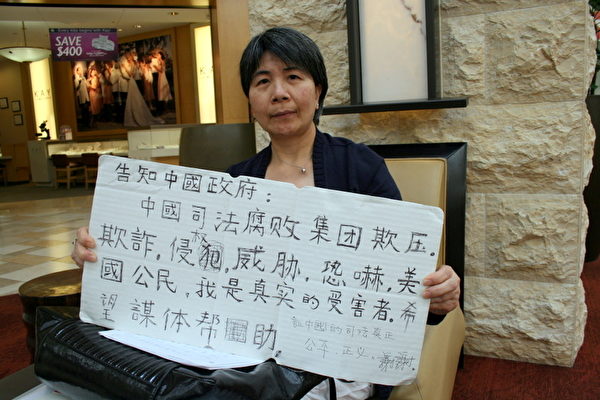 SAVE
$400
KAY
告知中國政府：
中國司法腐敗集团欺压.
欺詐，侵犯，威胁，恐嚇，美
國公民，我是真实的受害者.希
望謀体帮助.
訟中國的司法真正
公平.正义.謝謝.